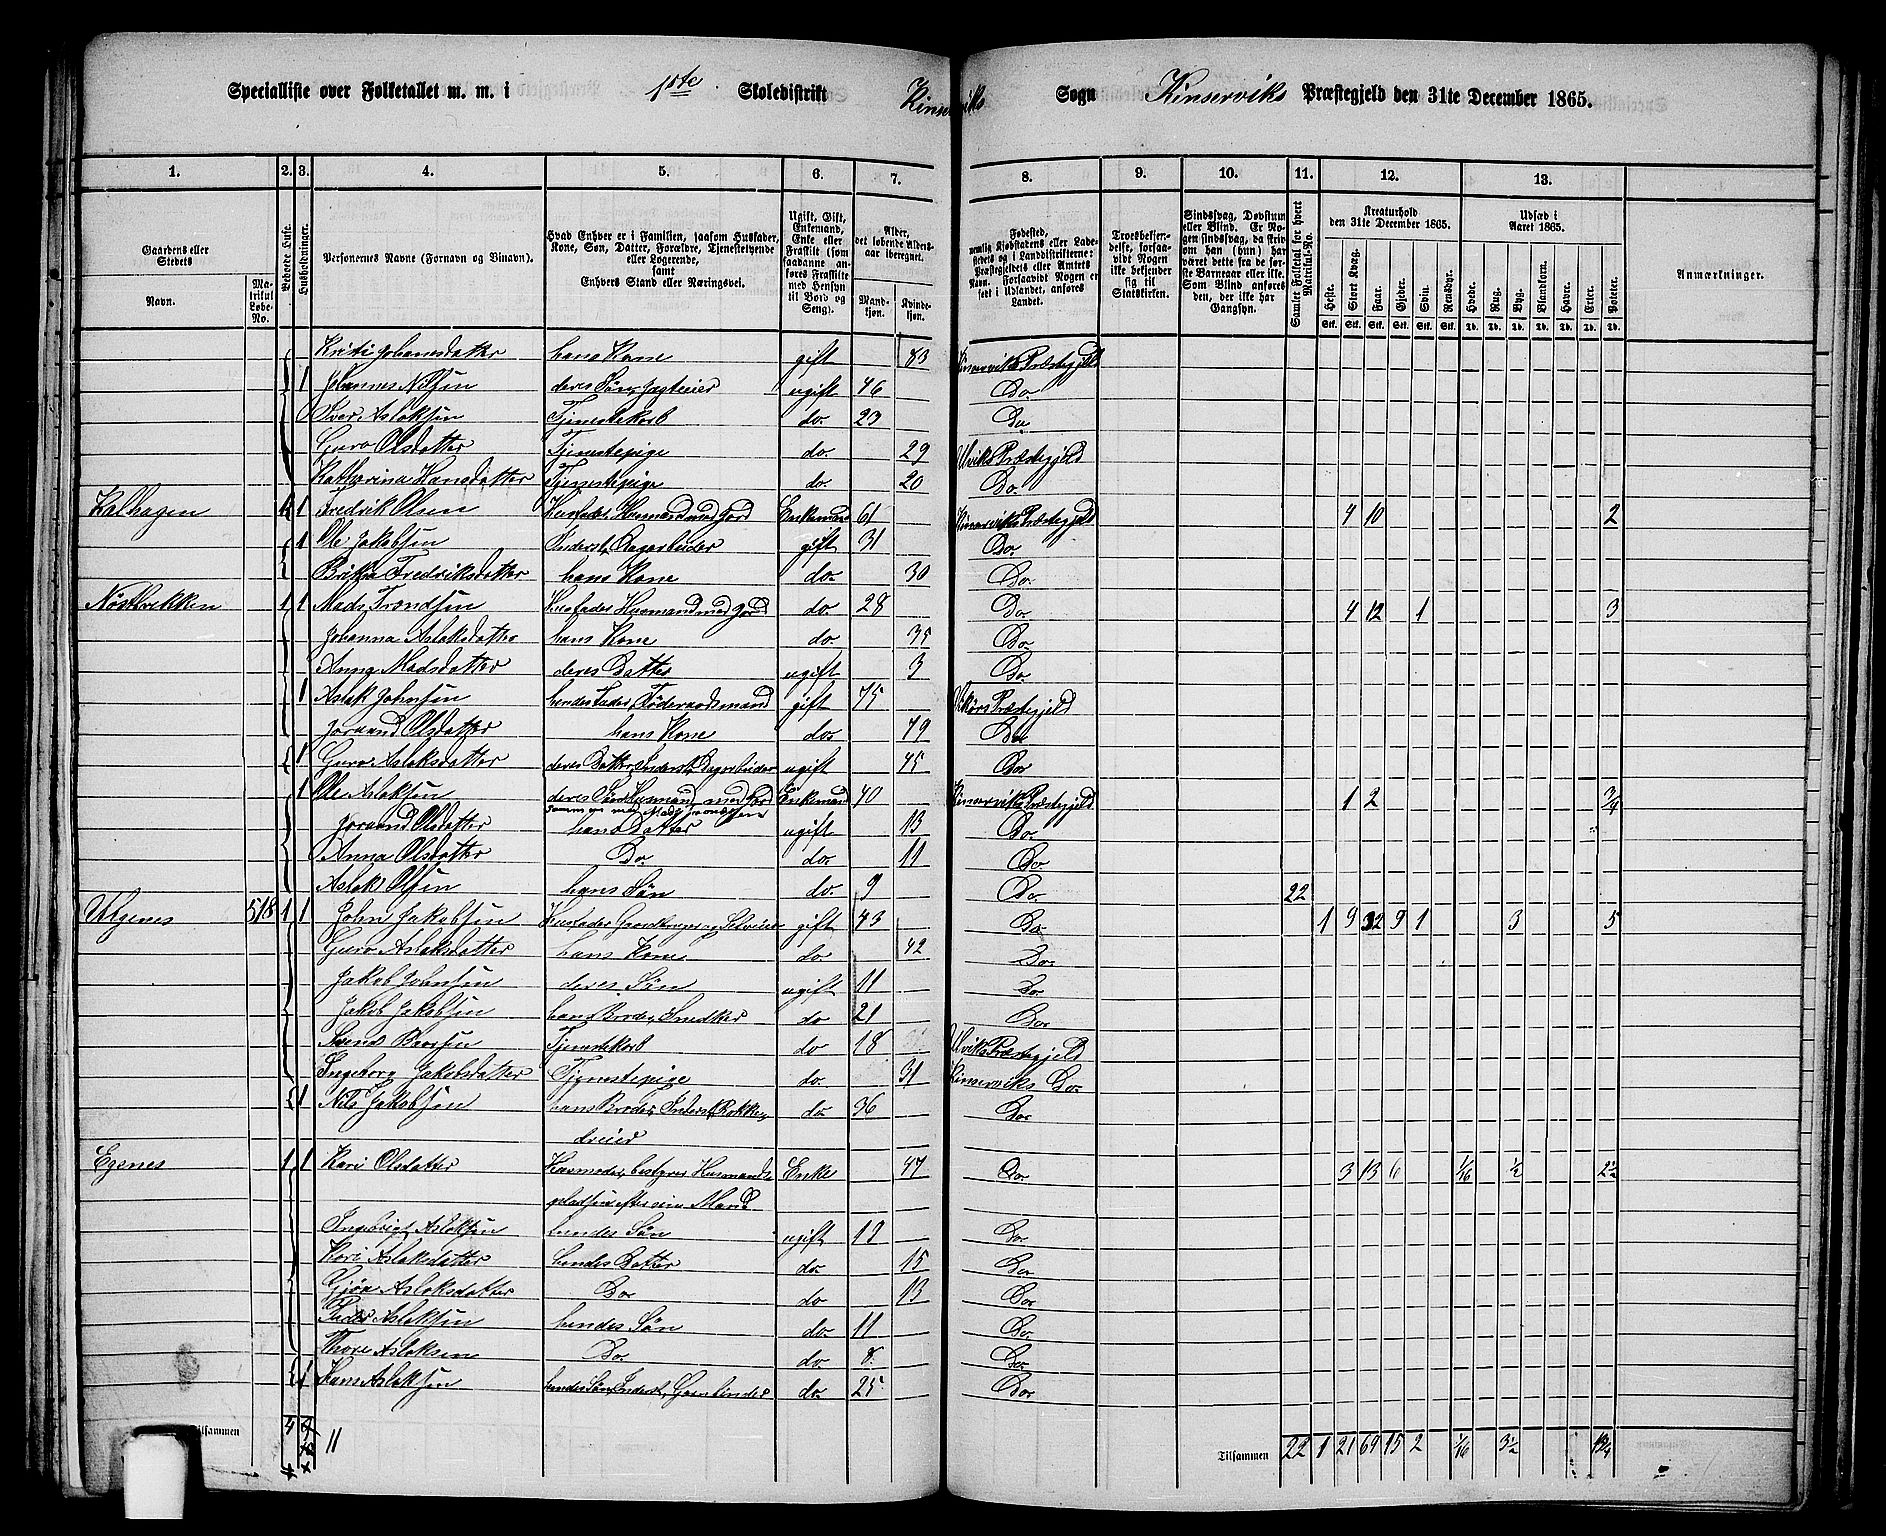 Speciallifte over Folketallet m. m. i 1ste Skoledistrikt Kinserviks Sogn Kinserviks Præstegjeld den 31te December 1865.
1. 2. 3. 4. 5. 6. 7. 8. 9. 10. 11. 12. 13.
Gaardens eller Stedets Navn. Matrikul Løbe-No. Beboede Huse. Husholdninger. Personernes Navne (Fornavn og Tilnavn). Hvad Enhver er i Familien, saasom Husfader, Kone, Søn, Datter, Forældre, Tjenestetyende eller Logerende, samt Enhvers Stand eller Næringsvei. Ugift, Gift, Enkemand, Enke eller Fraskilt (som saadanne anføres Fraskilte med Hensyn til Bord og Seng). Alder, det løbende Alders-aar iberegnet. Mandkjøn. Kvindekjøn.
Fødested, Troesbekjendelse, forsaavidt Nogen ikke bekjender sig til Statskirken. Samlet Folketal for hvert Matrikul-No. Kreaturhold den 31te December 1865. Udsæd i Aaret 1865. Anmærkninger.
Heste. Stort Kvæg. Faar. Gjeder. Svin. Rensdyr. Hvede. Rug. Byg. Blandkorn. Havre. Erter. Poteter.
Kristi Johansdatter hans Kone gift 83 Kinserviks Præstegjeld
1 Johannes Nilsen deres Søn, Jagteier ugift 46 Do.
Iver Aslaksen Tjenestekarl do. 23 Do.
Guro Olsdatter Tjenestepige do. 29 Ulviks Præstegjeld
Katharina Hansdatter Tjenestepige do. 20 Do.
1 Fredrik Olsen Husfader, Husmand med Jord Enkemand 61 Kinserviks Præstegjeld 4 10 2
1 Ole Jakobsen Inderst, gift 31 Do.
Brita Fredriksdatter hans Kone do. 30 Do.
1 1 Mads Trondsen Husfader Husmand med Jord do. 28 Do. 4 12 1 3
Johanna Aslaksdatter hans Kone do. 35 Do.
Anna Madsdatter deres Datter ugift 3 Do.
1 Aslak Johnsen hendes Fader, Føderaadsmand gift 75 Præstegjeld
Joraand Olsdatter hans Kone do. 79 Do.
1 Guro Aslaksdatter deres Datter, Inderst, ugift 45 Do.
1 Ole Aslaksen deres Søn Husmand med Jord Enkemand 40 Kinserviks Præstegjeld 1 2 3/4
sammen med Mads Trondsen
Joraand Olsdatter hans Datter ugift 13 Do.
Anna Olsdatter Do. do. 11 Do.
Aslak Olsen hans Søn do. 9 Do. 22
518 1 1 John Jakobsen Husfader, Gaardbruger og Selveier gift 43 Do. 1 9 32 9 1 3 5
Guro Aslaksdatter hans Kone do 42 Do.
Jakob Johnsen deres Søn ugift 11 Do.
Jakob Jakobsen hans Broder, Snedker do 21 Do.
Tjenestekarl do 18 Ulviks Præstegjeld
Ingeborg Jakobsdatter Tjenestepige do. 31 Kinserviks Do.
1 Nils Jakobsen hans Broder, Inderst, Rokke- do. 36 Do.
dreier
Egenes 1 1 Kari Olsdatter Husmoder, bestyrer Husmands- Enke 47 Do. 3 13 6 1/16 1/2 2 1/2
pladsen efter sin Mand
Ingebrigt Aslaksen hendes Søn ugift Do.
Kari Aslaksdatter hendes Datter do. 15 Do.
Aslaksdatter Do. do 13 Do.
Peder Aslaksen hendes Søn do. 11 Do.
Thore Aslaksen Do. do. 8 Do.
1 Hans Aslaksen hendes Søn, Inderst, do. 25 Do.
Tilsammen 4 11
Tilsammen 22 1 21 69 15 2 1/16 3 1/2